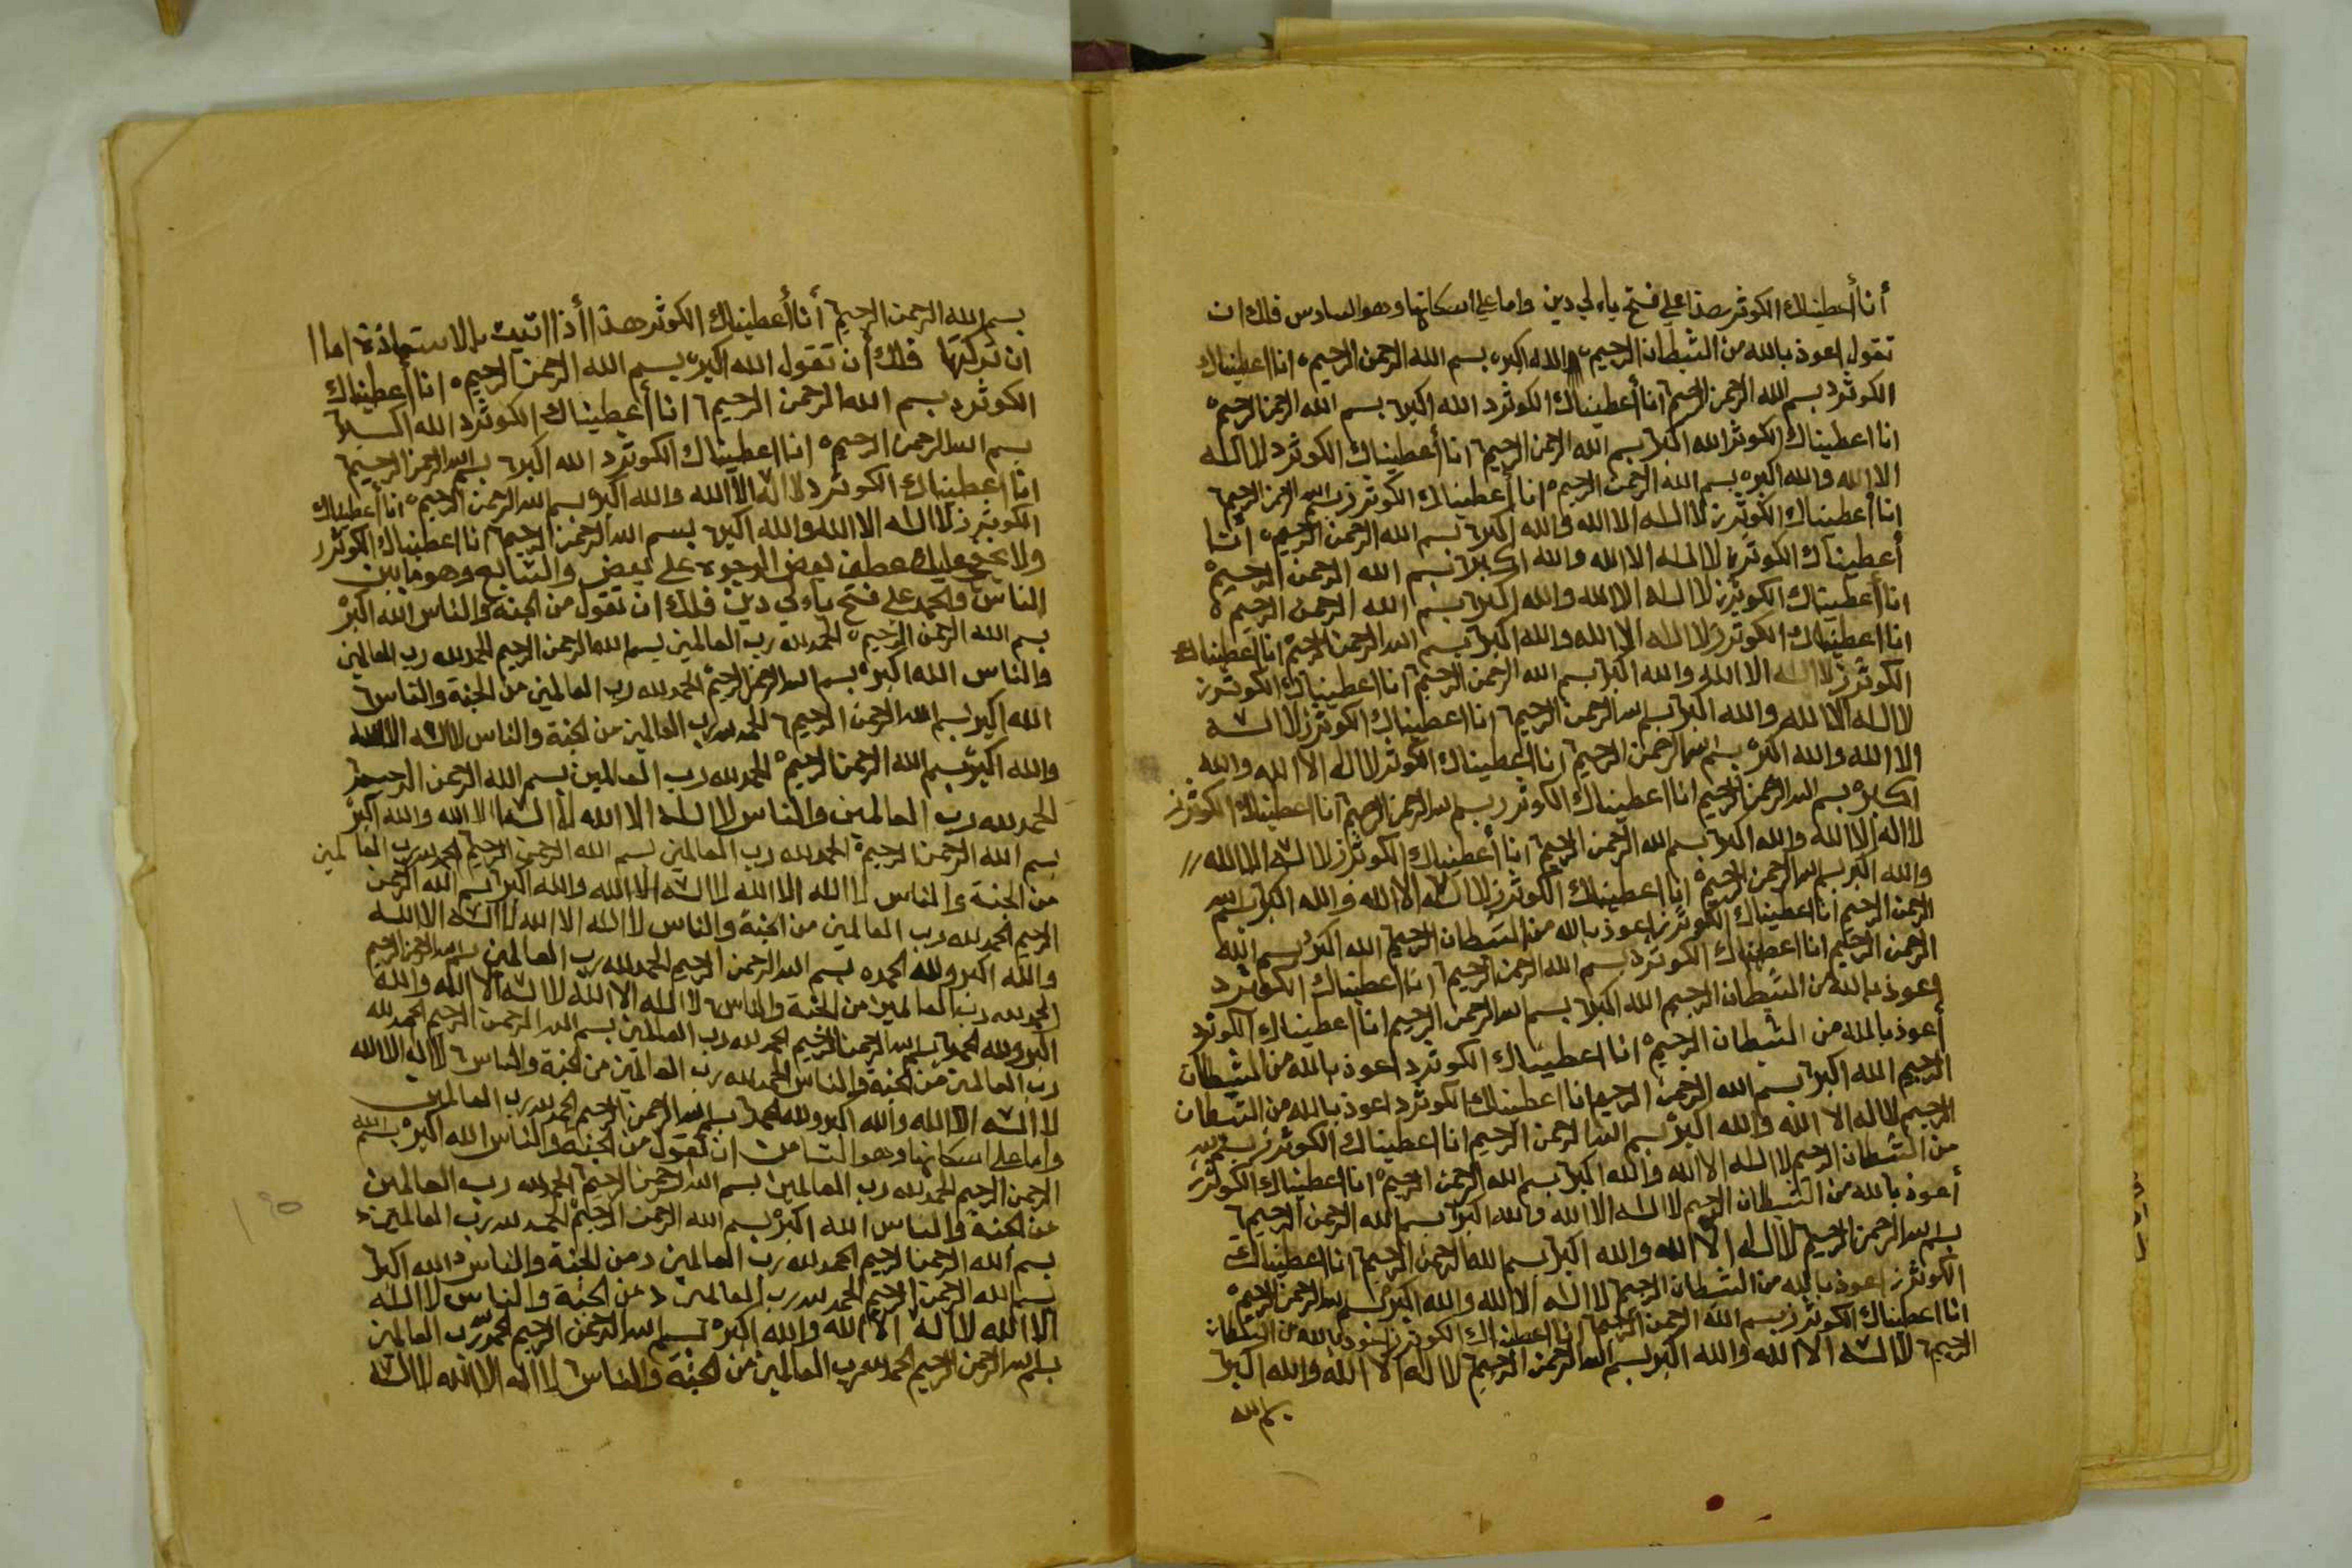 أنا أعطيناك الكوثر هذا على فتح ياء لي دين واما على اسكانها وهو السادس فلك ان
تقول اعوذ بالله من الشيطان الرجيم والله اكبر بسم الله الرحمن الرحيم انا اعطيناك
الكوثر د بسم الله الرحمن الرحيم انا أعطيناك الكوثر د الله اكبر بسم الله الرحمن الرحيم
انا اعطيناك الكوثر الله اكبر بسم الله الرحمن الرحيم انا أعطيناك الكوثر د لا اله
الا الله والله اكبر بسم الله الرحمن الرحيم انا أعطيناك الكوثر ز بسم الله الرحمن الرحيم
انا أعطيناك الكوثر ز لا اله الا الله والله اكبر بسم الله الرحمن الرحيم انا
أعطيناك الكوثر لا اله الا الله والله اكبر بسم الله الرحمن الرحيم
انا أعطيناك الكوثر ز لا اله الا الله والله اكبر بسم الله الرحمن الرحيم
انا اعطيناك الكوثر ز لا اله الا الله والله اكبر بسم الله الرحمن الرحيم انا أعطيناك
الكوثر ز لا اله الا الله والله اكبر بسم الله الرحمن الرحيم انا اعطيناك الكوثر ز
لا اله الا الله والله اكبر بسم الله الرحمن الرحيم انا اعطيناك الكوثر ز لا اله
الا الله والله اكبر بسم الله الرحمن الرحيم انا اعطيناك الكوثر لا اله الا الله والله
اكبر بسم الله الرحمن الرحيم انا اعطيناك الكوثر ر بسم الله الرحمن الرحيم انا اعطيناك الكوثر ز
لا اله الا الله والله اكبر بسم الله الرحمن الرحيم انا أعطيناك الكوثر ز لا اله الا الله
والله اكبر بسم الله الرحمن الرحيم انا اعطيناك الكوثر ز لا اله الا الله والله اكبر بسم الله
الرحمن الرحيم انا اعطيناك الكوثر ز اعوذ بالله من الشيطان الرجيم الله اكبر بسم الله
الرحمن الرحيم انا اعطيناك الكوثر د بسم الله الرحمن الرحيم انا أعطيناك الكوثر د
اعوذ بالله من الشيطان الرجيم الله اكبر بسم الله الرحمن الرحيم انا اعطيناك الكوثر د
أعوذ بالله من الشيطان الرجيم انا اعطيناك الكوثر د اعوذ بالله من الشيطان
الرجيم الله اكبر بسم الله الرحمن الرحيم انا اعطيناك الكوثر د اعوذ بالله من الشيطان
الرجيم لا اله الا الله والله اكبر بسم الله الرحمن الرحيم انا اعطيناك الكوثر ز بسم الله
من الشيطان الرجيم لا اله الا الله والله اكبر بسم الله الرحمن الرحيم انا اعطيناك الكوثر ز
أعوذ بالله من الشيطان الرجيم لا اله الا الله والله اكبر بسم الله الرحمن الرحيم
بسم الله الرحمن الرحيم لا اله الا الله والله اكبر بسم الله الرحمن الرحيم انا اعطيناك
الكوثر ز اعوذ بالله من الشيطان الرجيم لا اله الا الله والله اكبر بسم الله الرحمن الرحيم
انا اعطيناك الكوثر ز بسم الله الرحمن الرحيم انا اعطيناك الكوثر ز اعوذ بالله من الشيطان
الرجيم لا اله الا الله والله اكبر بسم الله الرحمن الرحيم لا اله الا الله والله اكبر
بسم الله
بسم الله الرحمن الرحيم أنا أعطيناك الكوثر هذا أذا اتيت بالاستعاذة اما
ان تركتها فلك أن تقول الله اكبر بسم الله الرحمن الرحيم انا أعطيناك
الكوثر د بسم الله الرحمن الرحيم انا أعطيناك الكوثر د الله اكبر
بسم الله الرحمن الرحيم انا اعطيناك الكوثر د الله اكبر بسم الله الرحمن الرحيم
انا اعطيناك الكوثر د لا اله الا الله والله اكبر بسم الله الرحمن الرحيم انا أعطيناك
الكوثر ز لا اله الا الله والله اكبر بسم الله الرحمن الرحيم انا اعطيناك الكوثر ر
ولا يخفى عليك عطف بعض الوجوه على بعض والسابع وهو ما بين
الناس والحمد على فتح ياء لي دين فلك ان تقول من الجنة والناس الله اكبر
بسم الله الرحمن الرحيم الحمد لله رب العالمين بسم الله الرحمن الرحيم الحمد لله رب العالمين
والناس الله اكبر بسم الله الرحمن الرحيم الحمد لله رب العالمين من الجنة والناس
الله اكبر بسم الله الرحمن الرحيم الحمد لله رب العالمين من الجنة والناس لا اله الا الله
والله اكبر بسم الله الرحمن الرحيم الحمد لله رب العالمين بسم الله الرحمن الرحيم
الحمد لله رب العالمين والناس لا اله الا الله لا اله الا الله والله اكبر
بسم الله الرحمن الرحيم الحمد لله رب العالمين بسم الله الرحمن الرحيم الحمد لله رب العالمين
من الجنة والناس لا اله الا الله لا اله الا الله والله اكبر بسم الله الرحمن
الرحيم الحمد لله رب العالمين من الجنة والناس لا اله الا الله لا اله الا الله
والله اكبر ولله الحمد بسم الله الرحمن الرحيم الحمد لله رب العالمين بسم الله الرحمن الرحيم
الحمد لله رب العالمين من الجنة والناس لا اله الا الله لا اله الا الله والله
اكبر ولله الحمد بسم الله الرحمن الرحيم الحمد لله رب العالمين بسم الله الرحمن الرحيم الحمد لله
رب العالمين من الجنة والناس الحمد لله رب العالمين من الجنة والناس لا اله الا الله
لا اله الا الله والله اكبر ولله الحمد بسم الله الرحمن الرحيم الحمد لله رب العالمين
واما على اسكانها وهو الثامن ان تقول من الجنة والناس الله اكبر بسم الله
الرحمن الرحيم الحمد لله رب العالمين بسم الله الرحمن الرحيم الحمد لله رب العالمين
من الجنة والناس الله اكبر بسم الله الرحمن الرحيم الحمد لله رب العالمين د
بسم الله الرحمن الرحيم الحمد لله رب العالمين د من الجنة والناس الله اكبر
بسم الله الرحمن الرحيم الحمد لله رب العالمين د من الجنة والناس لا اله
الا الله لا اله الا الله والله اكبر بسم الله الرحمن الرحيم الحمد لله رب العالمين
بسم الله الرحمن الرحيم الحمد لله رب العالمين من الجنة والناس لا اله الا الله لا اله